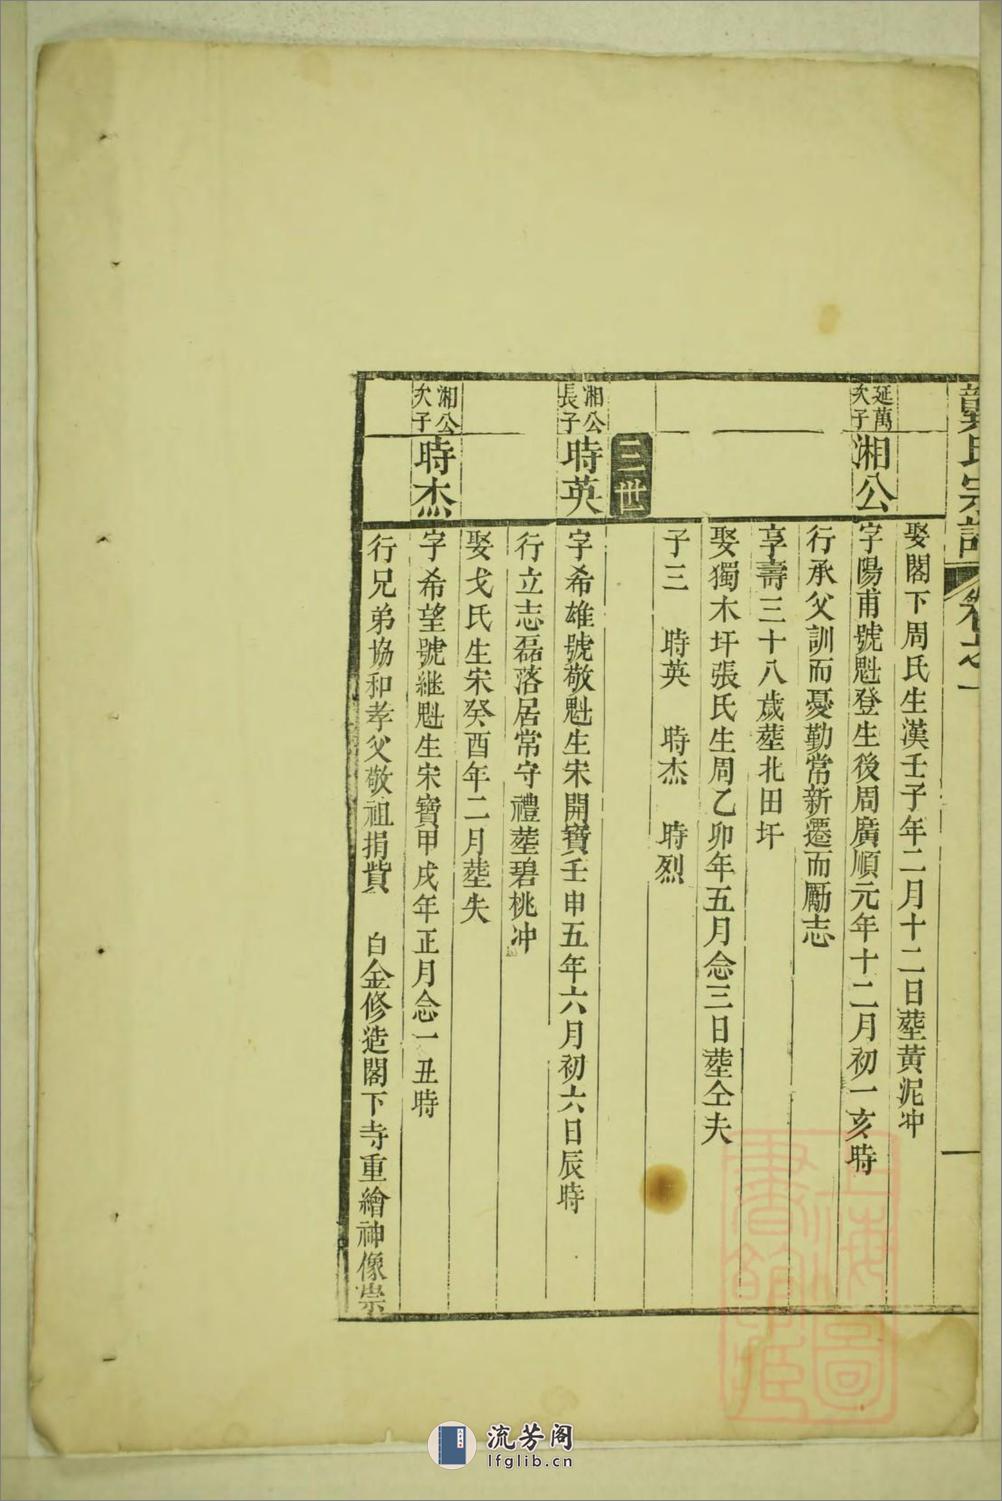 龔氏宗譜 卷之一
一
娶閣下周氏生漢壬子年二月十二日塟黄泥冲
延萬
次子
湘公
字陽甫號魁登生後周廣順元年十二月初一亥時
行承父訓而憂勤常新遷而勵志
享壽三十八歲塟北田圩
娶獨木圩張氏生周乙卯年五月念三日塟仝夫
子三 時英 時杰 時烈
三世
湘公
長子
時英
字希雄號敬魁生宋開寶壬申五年六月初六日辰時
行立志磊落居常守禮塟碧桃冲
娶戈氏生宋癸酉年二月塟失
湘公
次子
時杰
字希望號継魁生宋寶甲戌年正月念一丑時
行兄弟協和孝父敬祖捐貲 白金修造閣下寺重繪神像崇
上海圖
書館藏
流芳阁
lfglib.cn